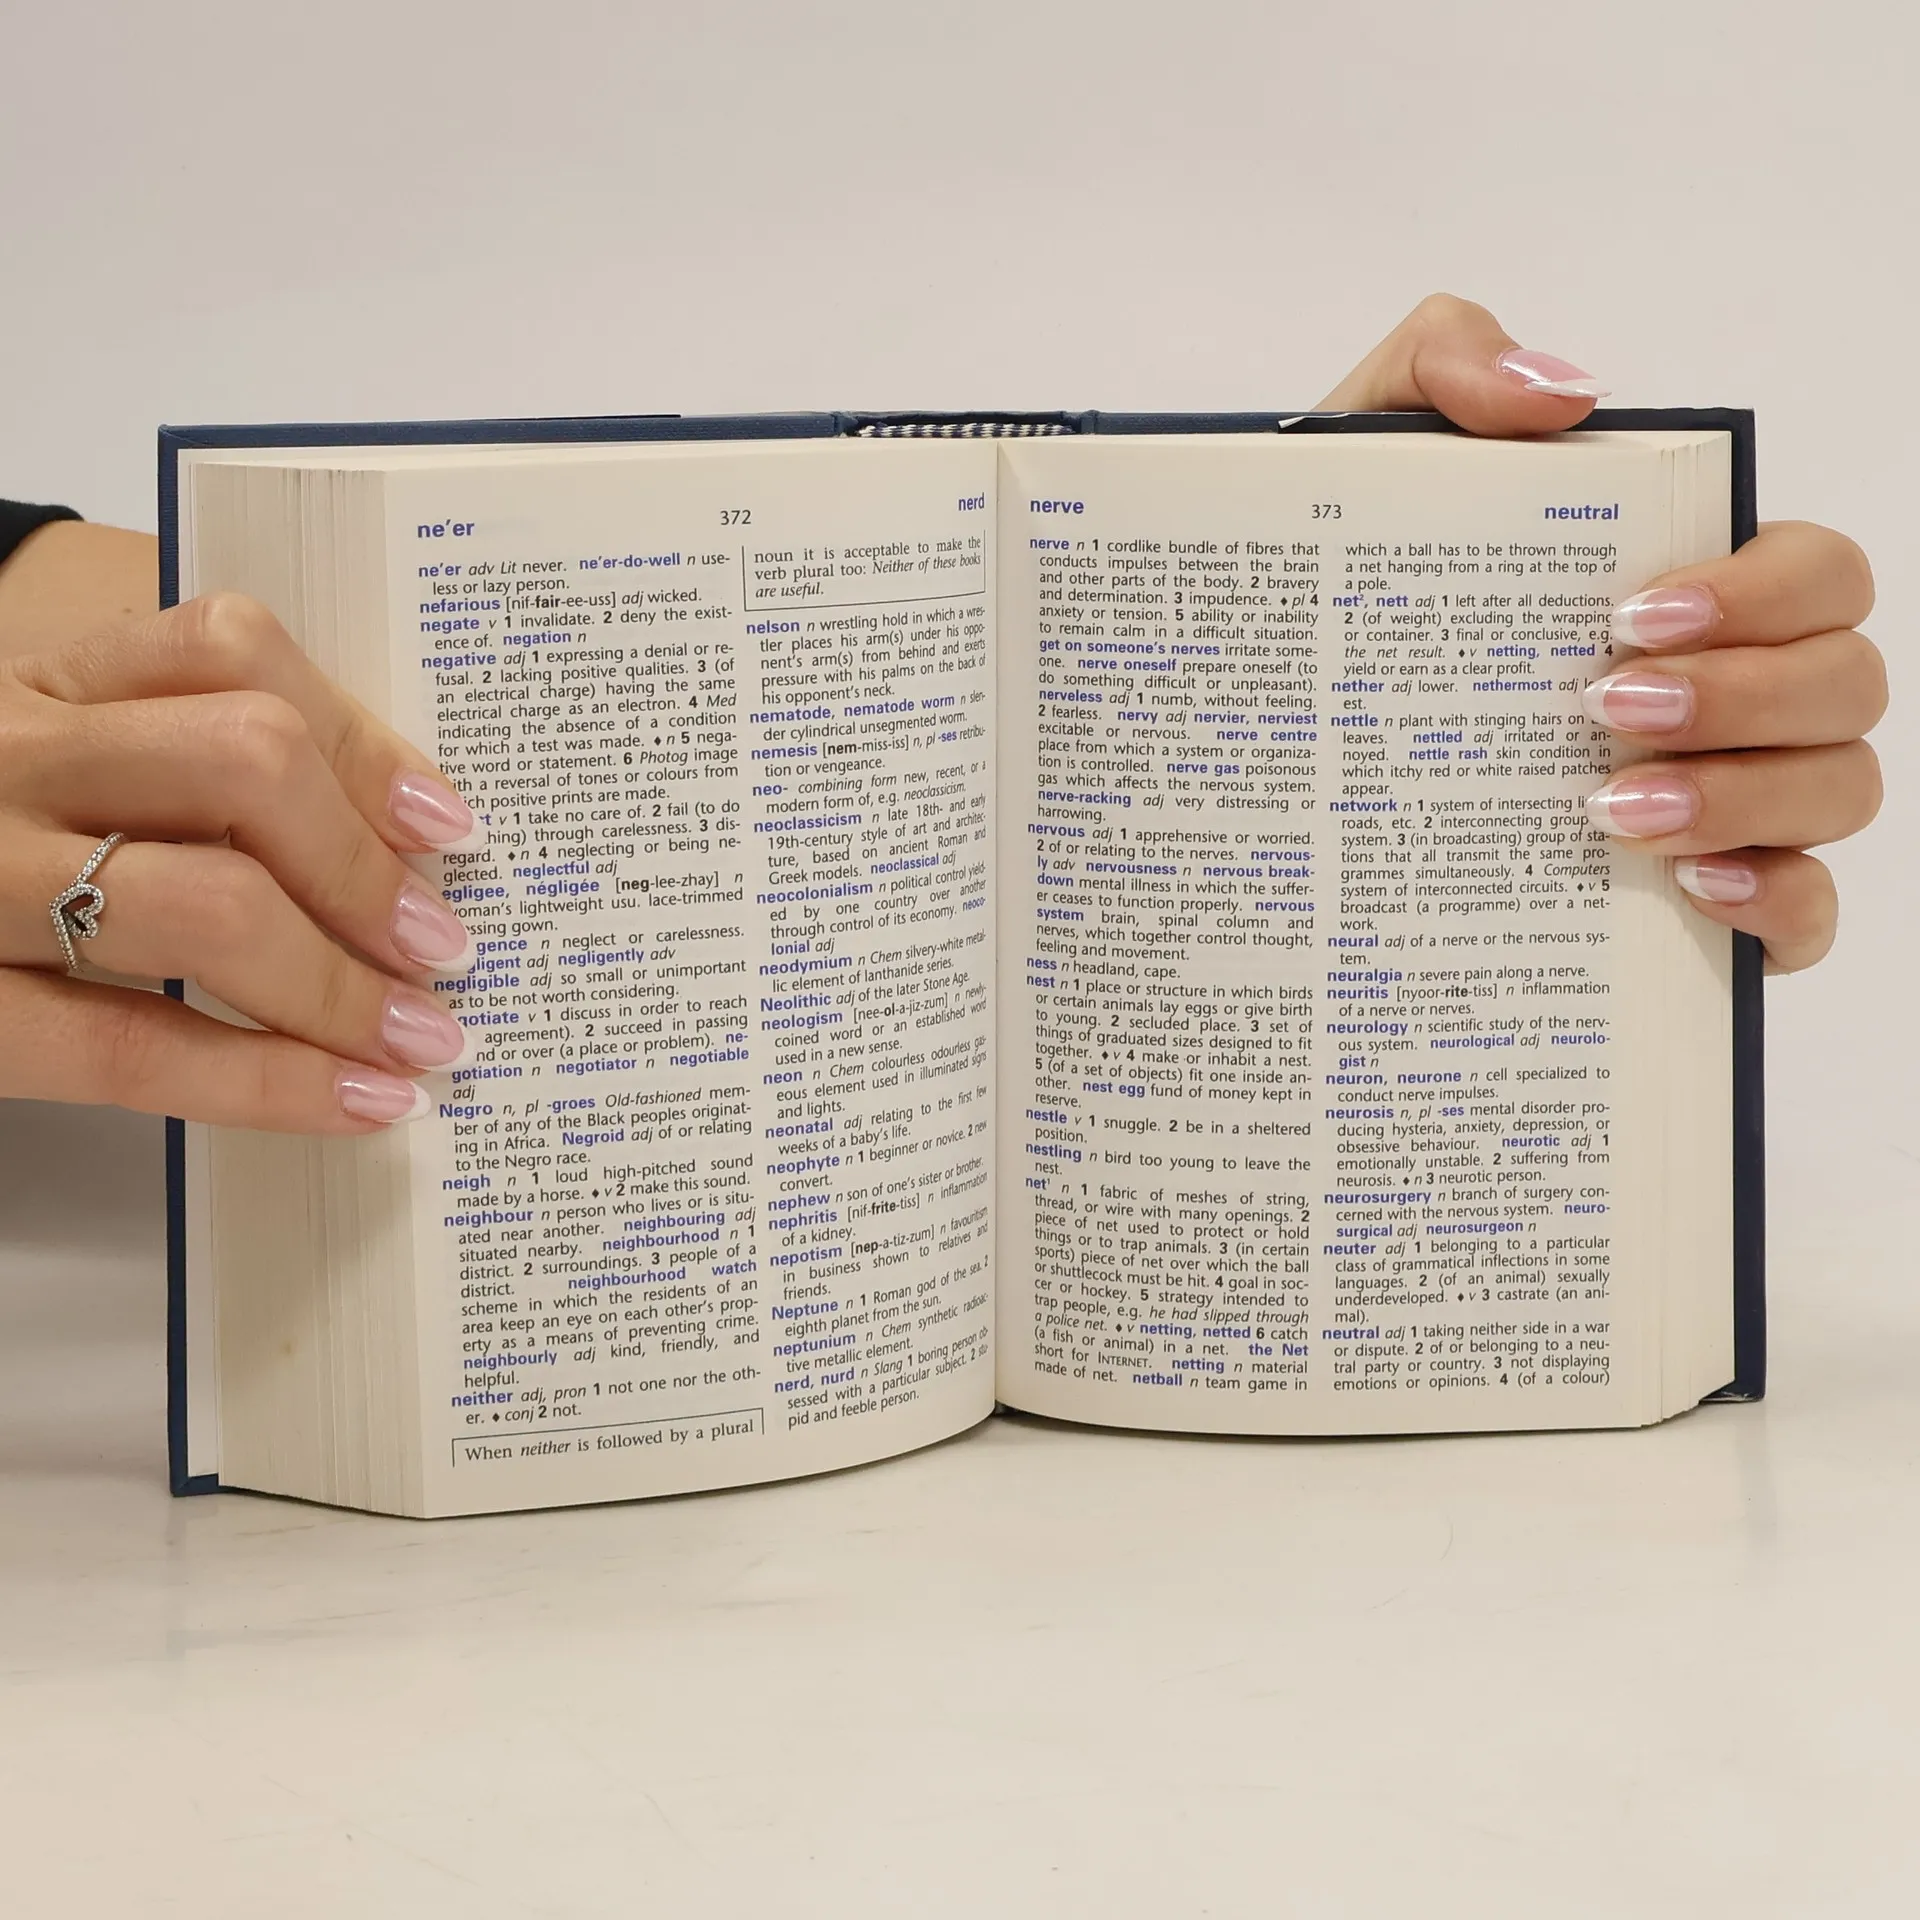 ne'er
372
nerd
ne'er adv Lit never. ne'er-do-well n use-
less or lazy person.
nefarious [nif-fair-ee-uss] adj wicked.
negate v 1 invalidate. 2 deny the exist-
ence of. negation n
negative adj 1 expressing a denial or re-
fusal. 2 lacking positive qualities. 3 (of
an electrical charge) having the same
electrical charge as an electron. 4 Med
indicating the absence of a condition
for which a test was made. ♦ n 5 nega-
tive word or statement. 6 Photog image
with a reversal of tones or colours from
positive prints are made.
v 1 take no care of. 2 fail (to do
through carelessness. 3 dis-
regard. ♦ n 4 neglecting or being ne-
glected. neglectful adj
négligée [neg-lee-zhay] n
woman's lightweight usu. lace-trimmed
gown.
n neglect or carelessness.
adj negligently adv
negligible adj so small or unimportant
as to be not worth considering.
v 1 discuss in order to reach
agreement). 2 succeed in passing
or over (a place or problem). ne-
gotiation n negotiator n negotiable
adj
Negro n, pl -groes Old-fashioned mem-
ber of any of the Black peoples originat-
ing in Africa. Negroid adj of or relating
to the Negro race.
neigh n 1 loud high-pitched sound
made by a horse. ♦ v 2 make this sound.
neighbour n person who lives or is situ-
ated near another. neighbouring adj
situated nearby. neighbourhood n 1
district. 2 surroundings. 3 people of a
district. neighbourhood watch
scheme in which the residents of an
area keep an eye on each other's prop-
erty as a means of preventing crime.
neighbourly adj kind, friendly, and
helpful.
neither adj, pron 1 not one nor the oth-
er. ♦ conj 2 not.
When neither is followed by a plural
noun it is acceptable to make the
verb plural too: Neither of these books
are useful.
nelson n wrestling hold in which a wres-
tler places his arm(s) under his oppo-
nent's arm(s) from behind and exerts
pressure with his palms on the back of
his opponent's neck.
nematode, nematode worm n slen-
der cylindrical unsegmented worm.
nemesis [nem-miss-iss] n, pl -ses retribu-
tion or vengeance.
neo- combining form new, recent, or a
modern form of, e.g. neoclassicism.
neoclassicism n late 18th- and early
19th-century style of art and architec-
ture, based on ancient Roman and
Greek models. neoclassical adj
neocolonialism n political control yield-
ed by one country over another
through control of its economy. neoco-
lonial adj
neodymium n Chem silvery-white metal-
lic element of lanthanide series.
Neolithic adj of the later Stone Age.
neologism [nee-ol-a-jiz-zum] n newly-
coined word or an established word
used in a new sense.
neon n Chem colourless odourless gas-
eous element used in illuminated signs
and lights.
neonatal adj relating to the first few
weeks of a baby's life.
neophyte n 1 beginner or novice. 2 new
convert.
nephew n son of one's sister or brother.
nephritis [nif-frite-tiss] n inflammation
of a kidney.
nepotism [nep-a-tiz-zum] n favouritism
in business shown to relatives and
friends.
Neptune n 1 Roman god of the sea. 2
eighth planet from the sun.
neptunium n Chem synthetic radioac-
tive metallic element.
nerd, nurd n Slang 1 boring person ob-
sessed with a particular subject. 2 stu-
pid and feeble person.
nerve
373
neutral
nerve n 1 cordlike bundle of fibres that
conducts impulses between the brain
and other parts of the body. 2 bravery
and determination. 3 impudence. ♦ pl 4
anxiety or tension. 5 ability or inability
to remain calm in a difficult situation.
get on someone's nerves irritate some-
one. nerve oneself prepare oneself (to
do something difficult or unpleasant).
nerveless adj 1 numb, without feeling.
2 fearless. nervy adj nervier, nerviest
excitable or nervous. nerve centre
place from which a system or organiza-
tion is controlled. nerve gas poisonous
gas which affects the nervous system.
nerve-racking adj very distressing or
harrowing.
nervous adj 1 apprehensive or worried.
2 of or relating to the nerves. nervous-
ly adv nervousness n nervous break-
down mental illness in which the suffer-
er ceases to function properly. nervous
system brain, spinal column and
nerves, which together control thought,
feeling and movement.
ness n headland, cape.
nest n 1 place or structure in which birds
or certain animals lay eggs or give birth
to young. 2 secluded place. 3 set of
things of graduated sizes designed to fit
together. ♦ v 4 make or inhabit a nest.
5 (of a set of objects) fit one inside an-
other. nest egg fund of money kept in
reserve.
nestle v 1 snuggle. 2 be in a sheltered
position.
nestling n bird too young to leave the
nest.
net¹ n 1 fabric of meshes of string,
thread, or wire with many openings. 2
piece of net used to protect or hold
things or to trap animals. 3 (in certain
sports) piece of net over which the ball
or shuttlecock must be hit. 4 goal in soc-
cer or hockey. 5 strategy intended to
trap people, e.g. he had slipped through
a police net. ♦ v netting, netted 6 catch
(a fish or animal) in a net. the Net
short for INTERNET. netting n material
made of net. netball n team game in
which a ball has to be thrown through
a net hanging from a ring at the top of
a pole.
net², nett adj 1 left after all deductions.
2 (of weight) excluding the wrapping
or container. 3 final or conclusive, e.g.
the net result. ♦ v netting, netted 4
yield or earn as a clear profit.
nether adj lower. nethermost adj
est.
nettle n plant with stinging hairs on
leaves. nettled adj irritated or an-
noyed. nettle rash skin condition in
which itchy red or white raised patches
appear.
network n 1 system of intersecting
roads, etc. 2 interconnecting group
system. 3 (in broadcasting) group of sta-
tions that all transmit the same pro-
grammes simultaneously. 4 Computers
system of interconnected circuits. ♦ v 5
broadcast (a programme) over a net-
work.
neural adj of a nerve or the nervous sys-
tem.
neuralgia n severe pain along a nerve.
neuritis [nyoor-rite-tiss] n inflammation
of a nerve or nerves.
neurology n scientific study of the nerv-
ous system. neurological adj neurolo-
gist n
neuron, neurone n cell specialized to
conduct nerve impulses.
neurosis n, pl -ses mental disorder pro-
ducing hysteria, anxiety, depression, or
obsessive behaviour. neurotic adj 1
emotionally unstable. 2 suffering from
neurosis. ♦ n 3 neurotic person.
neurosurgery n branch of surgery con-
cerned with the nervous system. neuro-
surgical adj neurosurgeon n
neuter adj 1 belonging to a particular
class of grammatical inflections in some
languages. 2 (of an animal) sexually
underdeveloped. ♦ v 3 castrate (an ani-
mal).
neutral adj 1 taking neither side in a war
or dispute. 2 of or belonging to a neu-
tral party or country. 3 not displaying
emotions or opinions. 4 (of a colour)